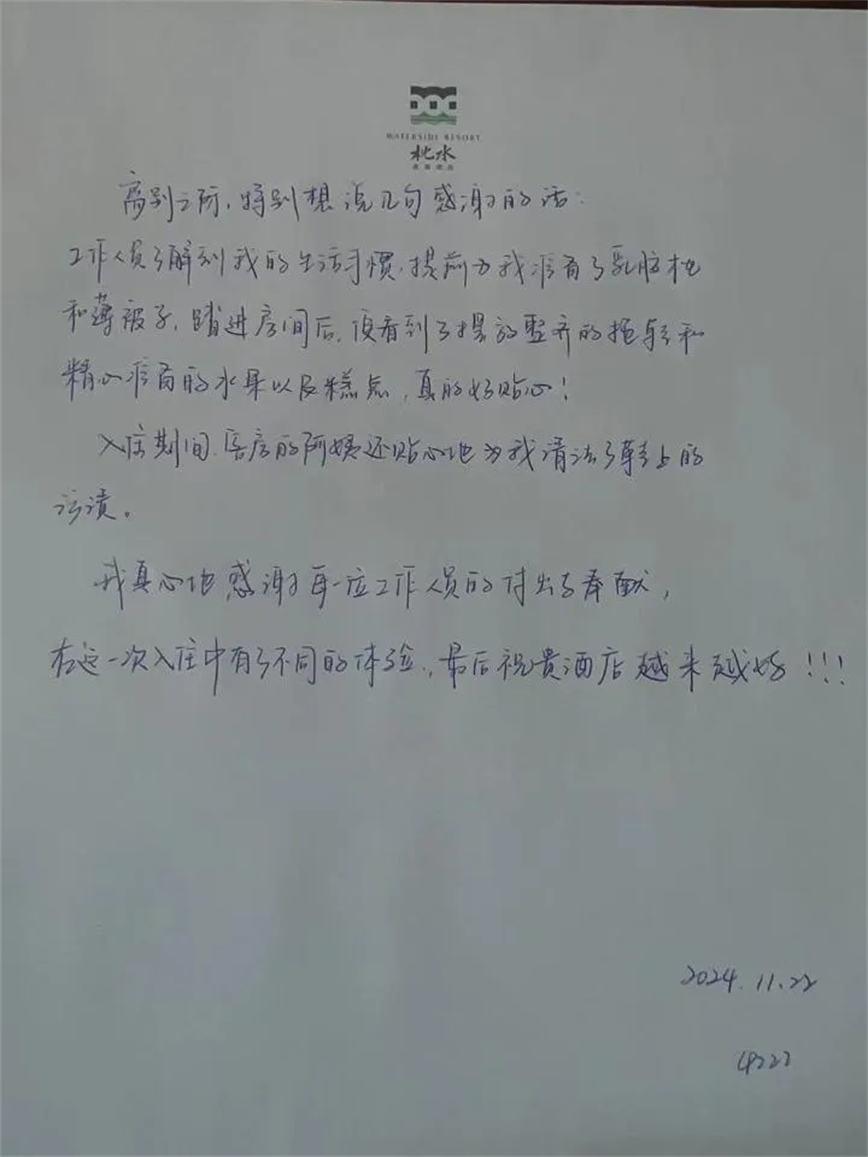 WATERSIDE RESORT
枕水
离别之际，特别想说几句感谢的话：
工作人员了解到我的生活习惯，提前为我准备了乳胶枕
和薄被子，踏进房间后，便看到了摆放整齐的拖鞋和
精心准备的水果以及糕点，真的好贴心！
入住期间，客房的阿姨还贴心地为我清洁了鞋上的
污渍。
我真心地感谢每一位工作人员的付出与奉献，
在这一次入住中有了不同的体验，最后祝贵酒店越来越好！！！
2024.11.22
4222